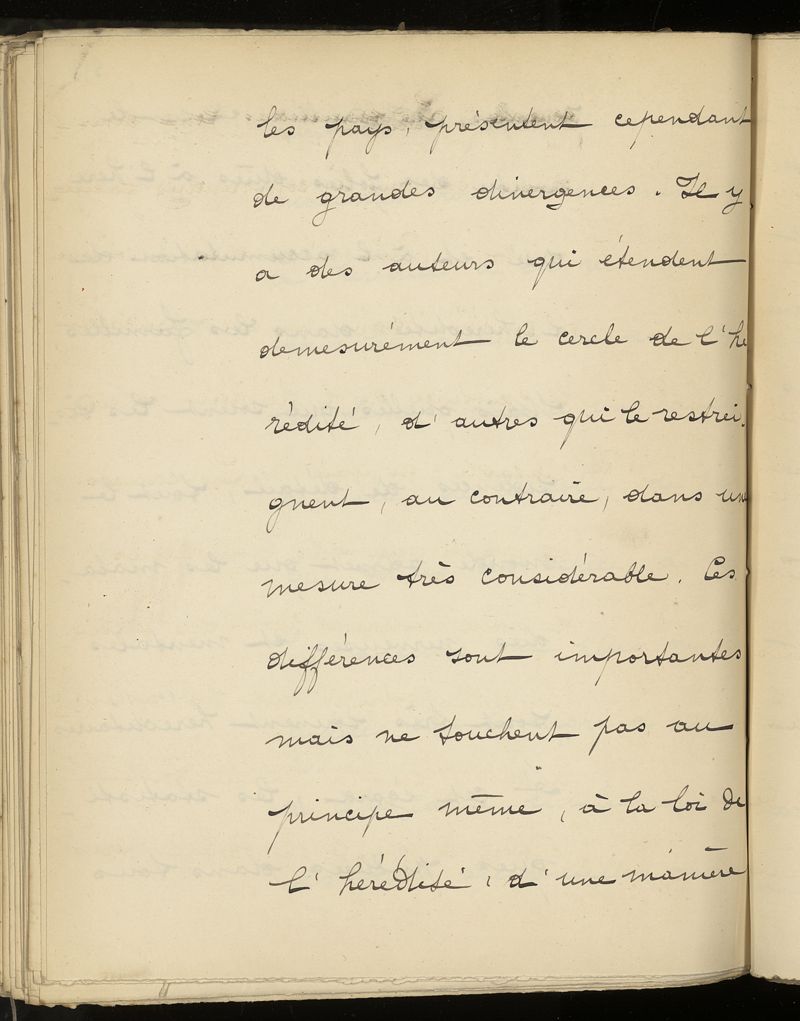 les pays, présentent cependant
de grandes divergences. Il y
a des auteurs qui étendent
demesurément le cercle de l'hé
rédité, d'autres qui le restrei
gnent, au contraire, dans une
mesure très considérable. Ces
différences sont importantes
mais ne touchent pas au
principe même, à la loi de
l'hérédité, d'une manière